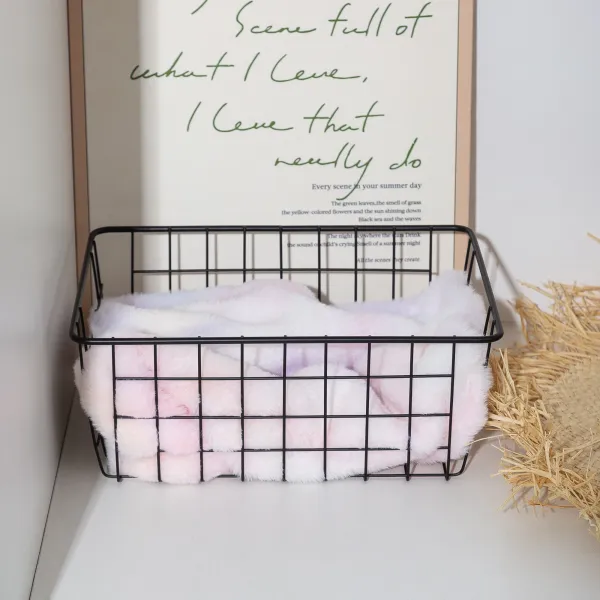 Scene full of
what I leve,
I leve that
really do
Every scene in your summer day
The green leaves,the smell of grass
the yellow-colored flowers and the sun shining down
Black sea and the waves
The night
smell of a summer night
All the scenes they create